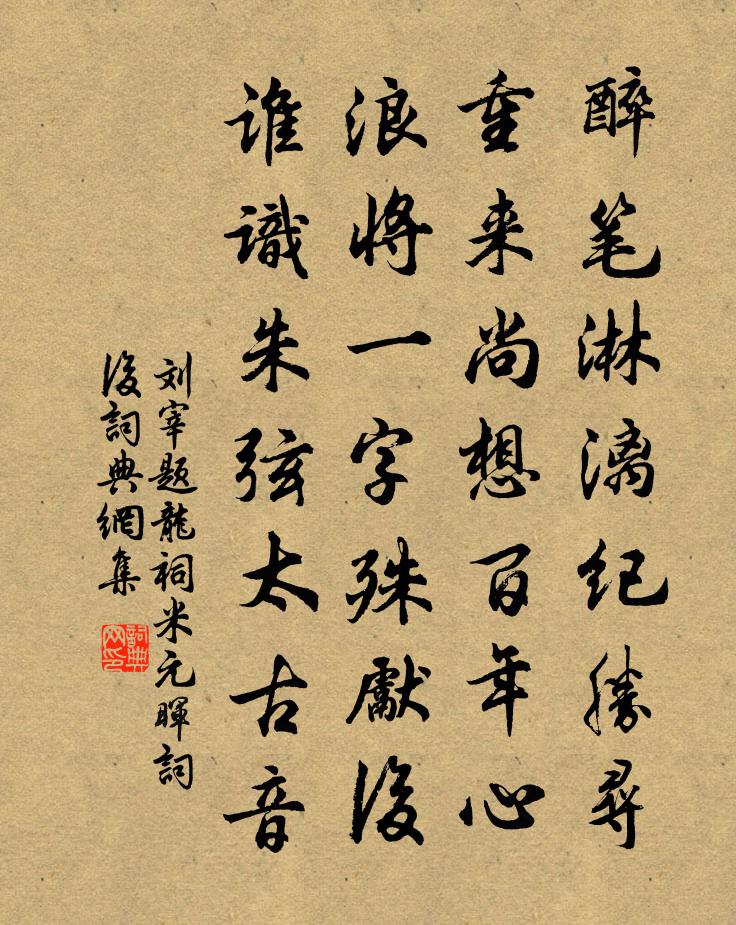 醉笔淋漓纪勝尋
重来尚想百年心
浪将一字殊獻後
谁識朱弦太古音
刘宰题龍祠米元暉詞
後詞典網集
詞典网印